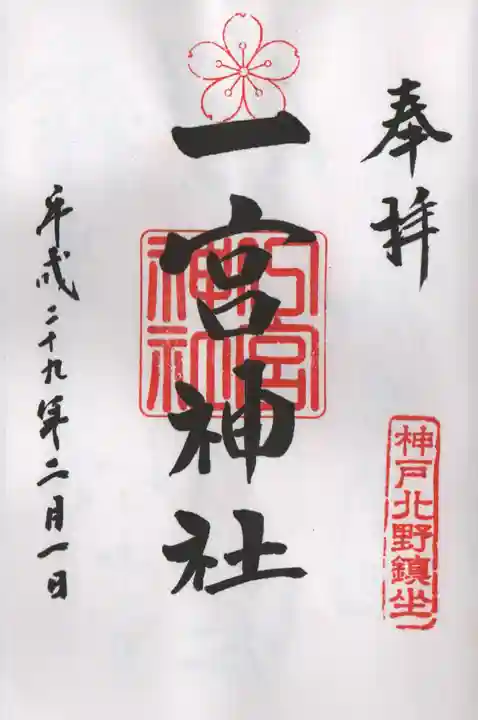 奉拝
神戸北野鎮坐
一宮神社
一宮神社
平成二十九年二月一日